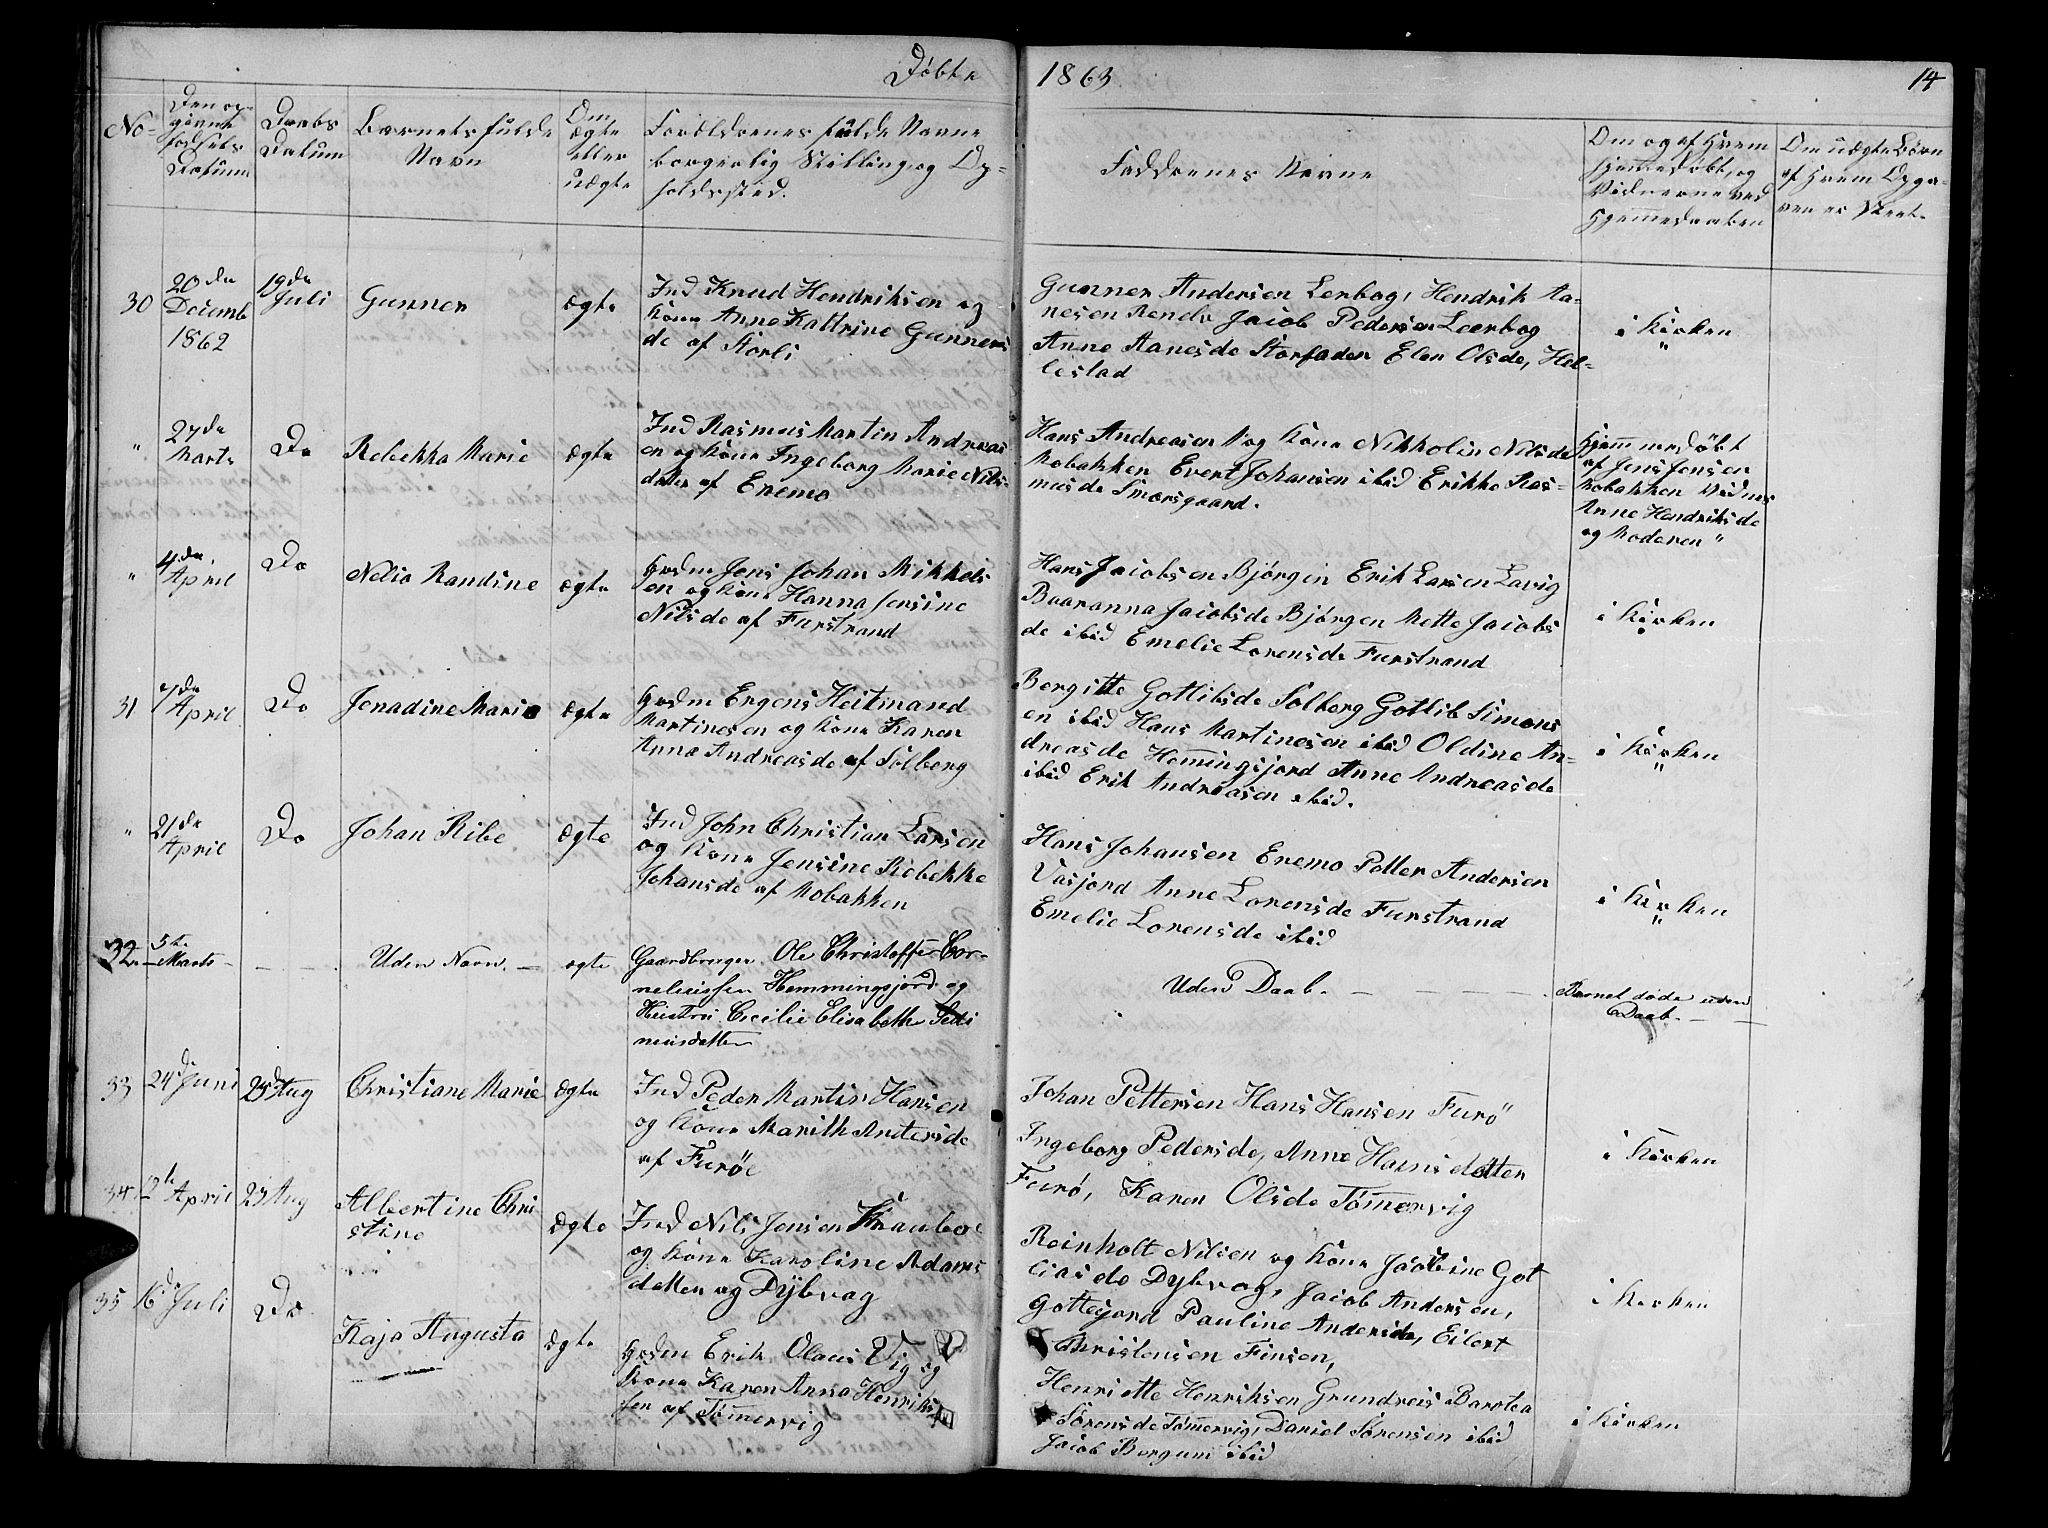 Døbte
1863
14
No
Den op-
givne
fødsels
Datum
Daabs
Datum
Barnets fulde
Navn
Om
ægte
eller
uægte
Forældrenes fulde Navne
borgerlig Stilling og Op-
holdssted.
Faddrenes Navne
Om og af Hvem
hjemmedøbt, og
Vidnerne ved
Hjemmedaaben
Om uægte Børn
af Hvem Opga-
ven er skeet.
30
20de
Decemb
1862
19de
Juli
Gunner
ægte
Ind Knud Hendriksen og
Kone Anne Kattrine Gunners
de af Storli
Gunner Andersen Lerbog, Hendrik Aa-
nesen Jacob Pedersen Leerbog
Anne Aanesde Storfaden Elen Olsde, Hel-
lestad
i Kirken
"
"
27de
Marts
Do
Rebekka Marie
ægte
Ind Rasmus Martin Andreas
en og Kone Ingeborg Marie Nils-
datter af Enemo
Hans Andreasen og Kone Nikkolin Nilsde
Mobakken Evert Johansen ibid Erikke Ras-
musde Smorsgaard.
Hjemmedøbt
af Jens Jensen
Mobakken Vidnes
Anne Hendriksde
og Moderen "
"
4de
April
Do
Nelia Randine
ægte
Hdm Jens Johan Mikkels
en og Kone Hanna Jensine
Nilsde af Furstrand
Hans Jacobsen Bjørgin Erik Larsen Lavig
Baaranna Jacobsde Bjørgen Mette Jacobs
de ibid Emelie Lorensde Furstrand
i Kirken
31
7de
April
Do
Jenadine Marie
ægte
Hdm Ergens Heitmand
Martinesen og Kone Karen
Anna Andreasde af Solberg
Bergitte Gotlibsde Solberg Gotlib Simons
en ibid Hans Martinesen ibid Oldine An-
dreasde Hemingsjord Anne Andreasde
ibid Erik Andreasen ibid.
i Kirken
"
"
21de
April
Do
Johan Ribe
ægte
Ind John Christian Larsen
og Kone Jensine Rebekke
Johansde af Mobakken
Hans Johansen Enemo Petter Andersen
Vasjord Anne Lorensde Furstrand
Emelie Lorensde ibid
i Kirken
"
32
5te
Marts
Uden Navn.
ægte
Gaardbruger Ole Christoffer Cor-
neliussen Hemmingsjord og
Hustru Cecilie Elisabeth
neusdatter
Uden Daab.
Barnet døde uden
Daab.
33
24de Juni
23de Aug
Christiane Marie
ægte
Ind Peder Martin Hansen
og Kone Marith Antersde
af Furøe
Johan Pettersen Hans Hansen Furö
Ingeborg Pedersde, Anne Hansdatter
Furö, Karen Olsde Tömervig
i Kirken
34
12te April
23 Aug
Albertine Chri
stine
ægte
Ind Nils Jensen
og Kone Karoline Adams
datter og Dÿbvag
Reinholt Nilsen og Kone Jacobine Got
liasde Dybvag, Jacob Andersen,
Gottesjord Pauline Andersde, Eilert
Christensen Finsen,
i Kirken
35
16de Juli
Do
Kaja Augusta
ægte
Hdm Erik Olaus Vig og
Kone Karen Anna Henriks
sen af Tömervig
Henriette Henriksen Grundreis Barolea
Sörensde Tömervig, Daniel Sörensen ibid
Jacob Bergum ibid
i Kirken